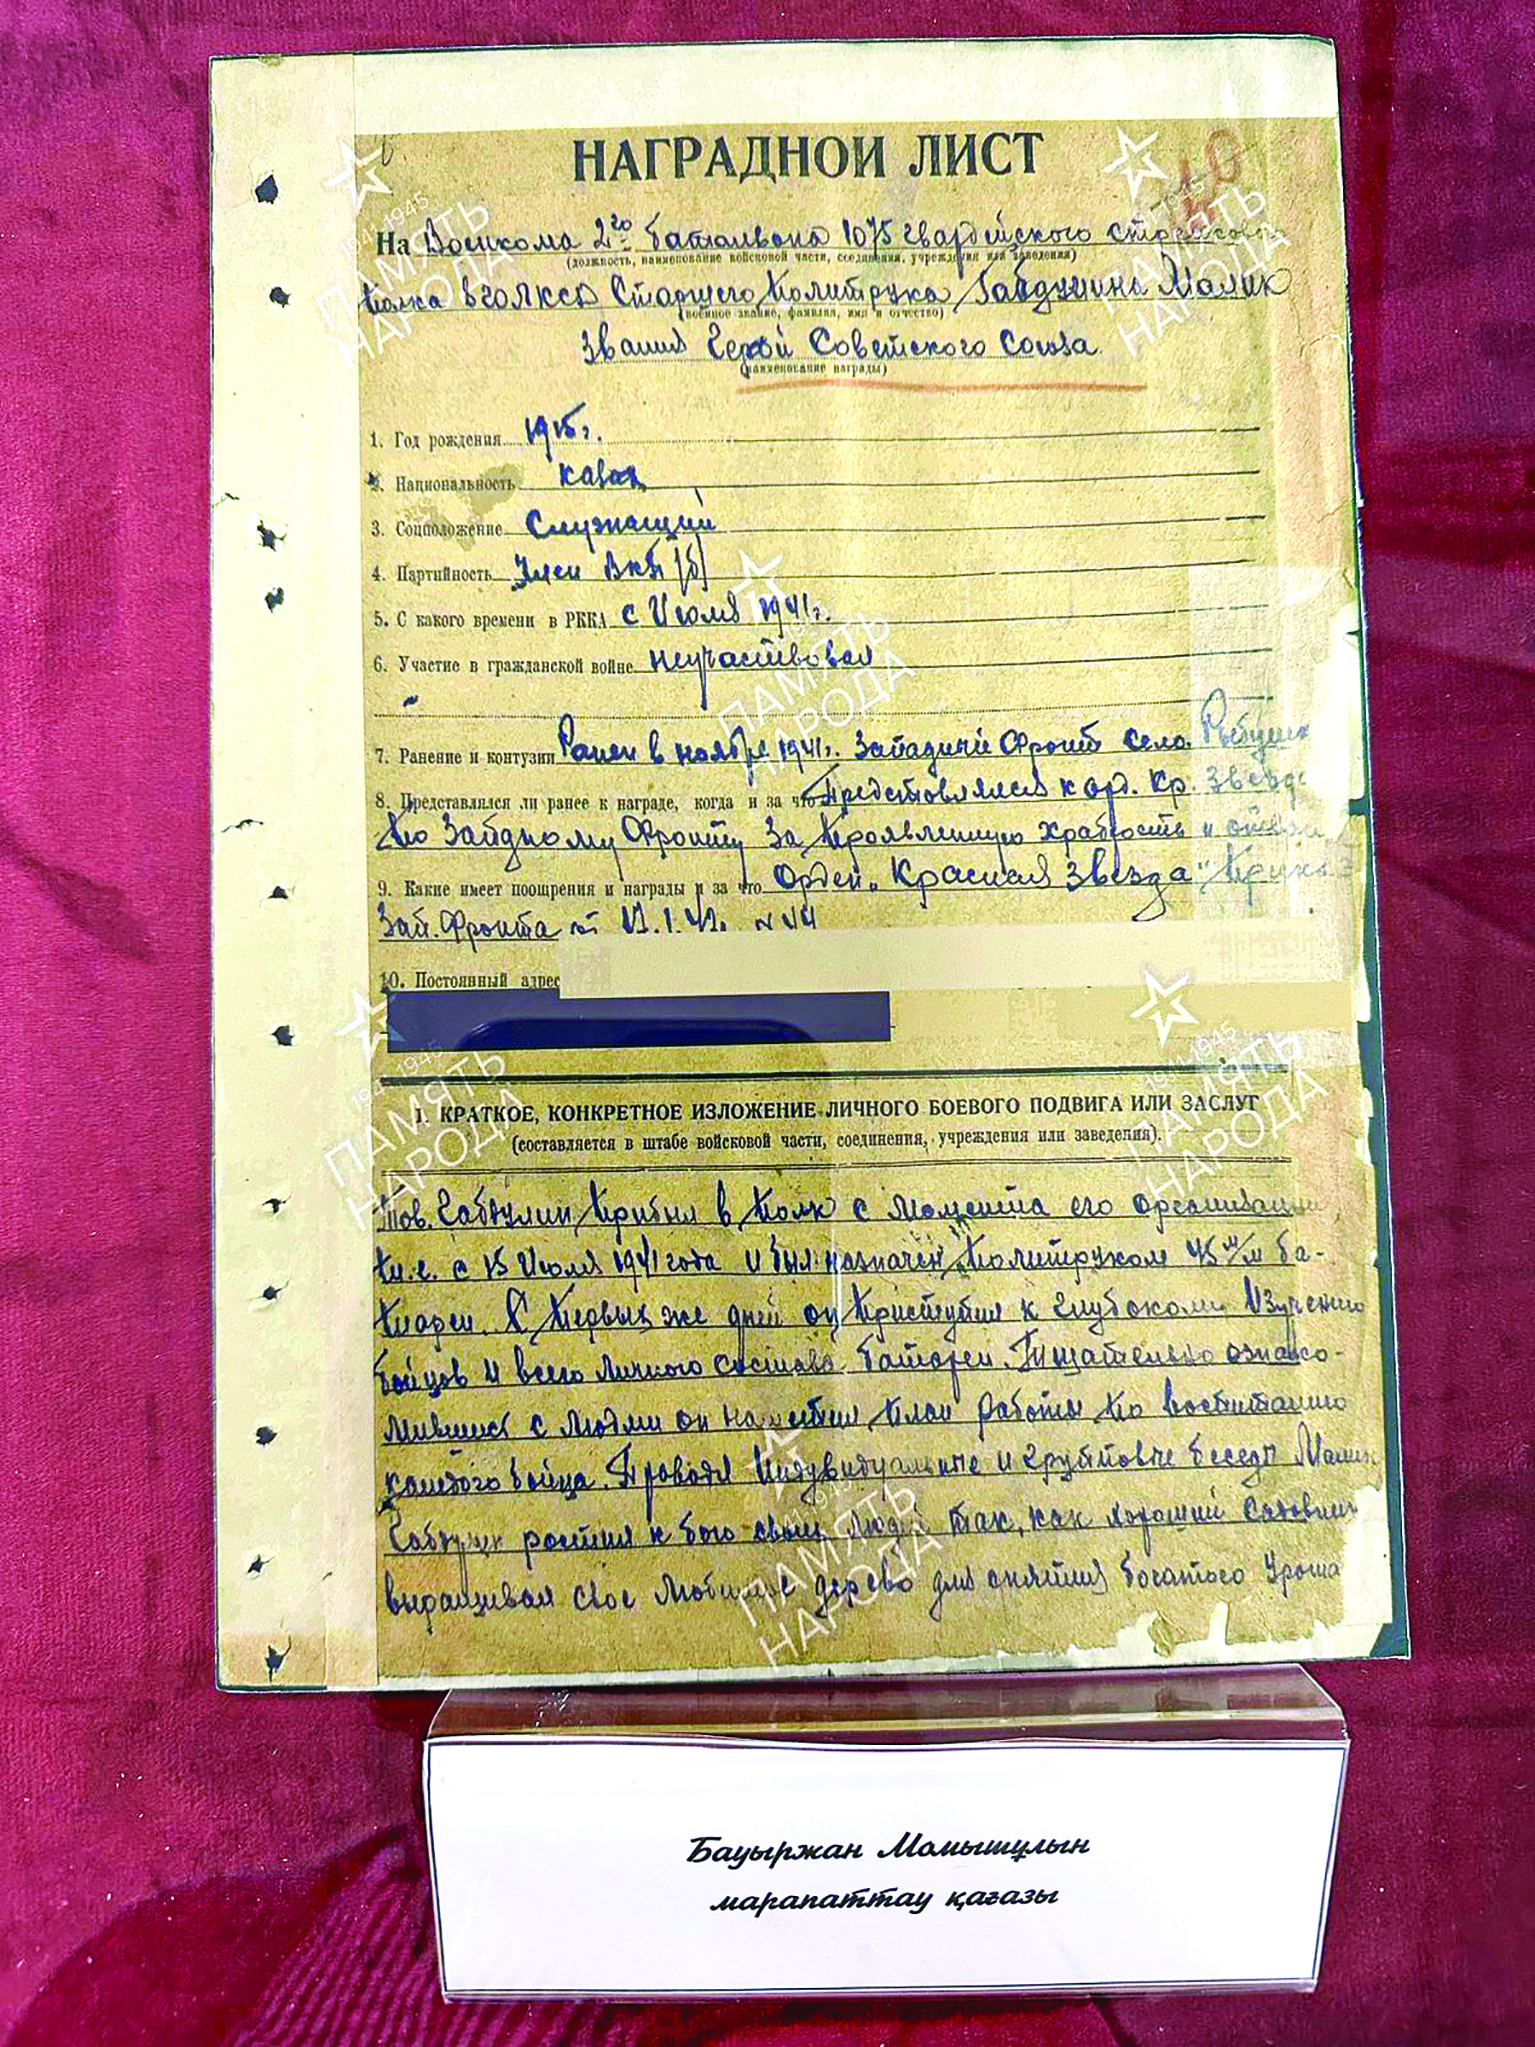 НАГРАДНОЙ ЛИСТ
На Военкома 2го баталиона 1075 гвардейского стрелкового
(должность, наименование войсковой части, соединения, учреждения или заведения)
полка Старшего Политрука Габдулина Малик
(военное звание, фамилия, имя и отчество)
Звания Герой Советского Союза
(наименование награды)
1. Год рождения 1915 г.
2. Национальность казах
3. Соцположение Служащий
4. Партийность Член ВКП(б)
5. С какого времени в РККА с Июля 1941 г.
6. Участие в гражданской войне неучаствовал
7. Ранение и контузии Ранен в ноябре 1941 г. Западный Фронт село
8. Представлялся ли ранее к награде, когда и за что Представлялся к орд. Кр. Звезда
по Западному Фронту за проявленную храбрость и
9. Какие имеет поощрения и награды и за что Орден „Красная Звезда"
Зап. Фронта от
10. Постоянный адрес
I. КРАТКОЕ, КОНКРЕТНОЕ ИЗЛОЖЕНИЕ ЛИЧНОГО БОЕВОГО ПОДВИГА ИЛИ ЗАСЛУГ
(составляется в штабе войсковой части, соединения, учреждения или заведения).
Тов. Габдулин прибыл в полк с момента его организации
т.е. с 15 Июля 1941 года и был назначен политруком 45 м/м ба-
тареи. С первых же дней он приступил к глубокому изучению
бойцов и всего личного состава батареи. Тщательно ознако-
мившись с людьми он наметил план работы по воспитанию
каждого бойца. Проводя индувидуальные и групповые беседы Малик
Габдулин растил к бою своих людей так, как хороший садовник
выращивал свое любимое дерево для снятия богатого урожа
1941 1945
ПАМЯТЬ
НАРОДА
1941 1945
ПАМЯТЬ
НАРОДА
ПАМЯТЬ
НАРОДА
1941 1945
ПАМЯТЬ
НАРОДА
1941 1945
ПАМЯТЬ
НАРОДА
1941 1945
ПАМЯТЬ
НАРОДА
Бауыржан Момышұлын
марапаттау қағазы